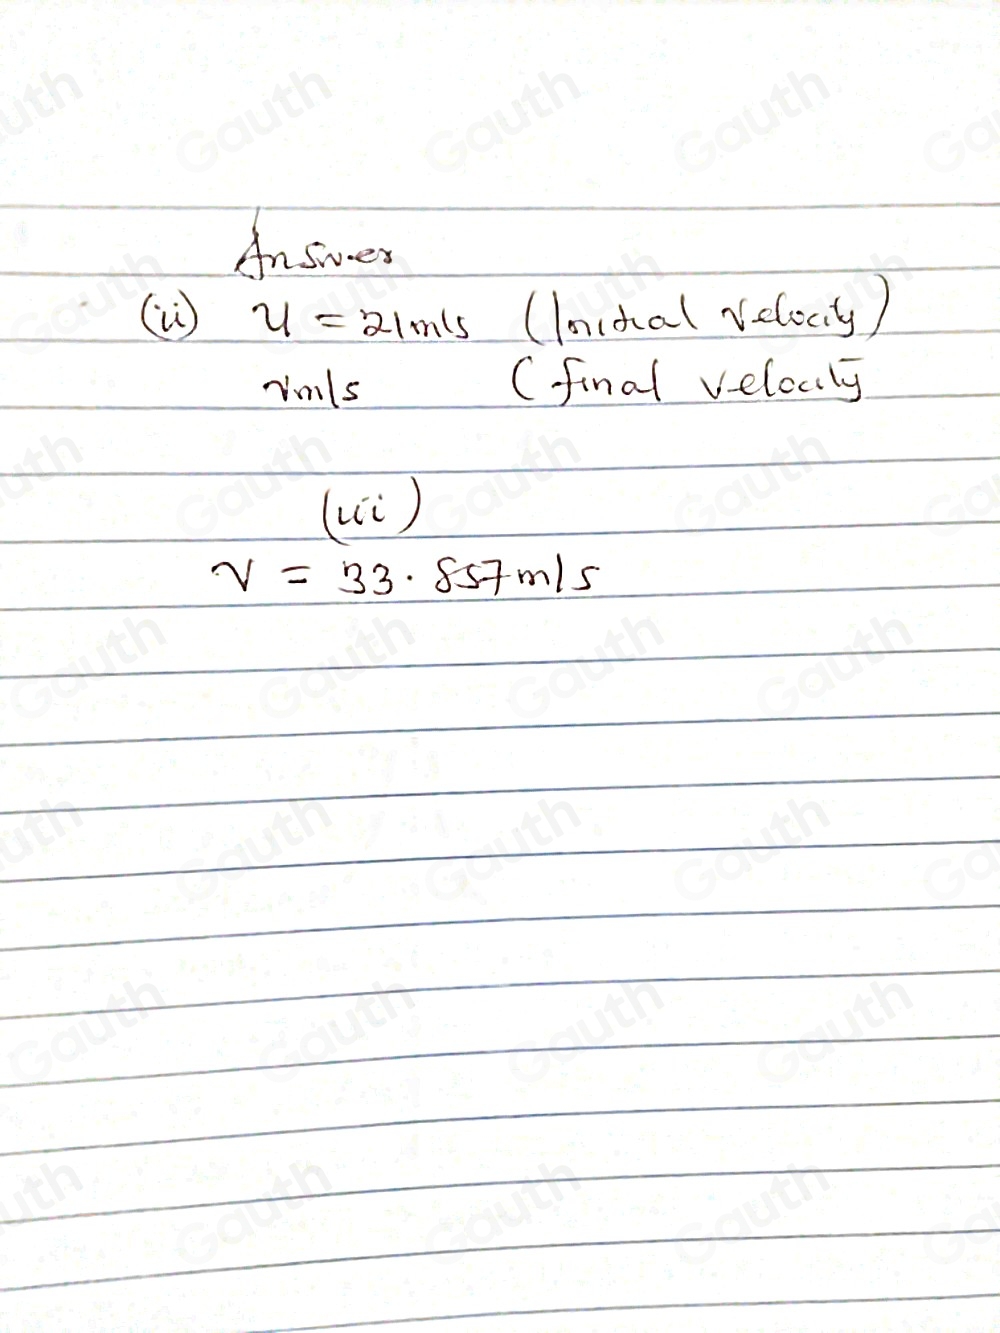 Answer
(ii) u = 21m/s (Initial velocity)
vm/s (final velocity
(iii)
v = 33.857m/s